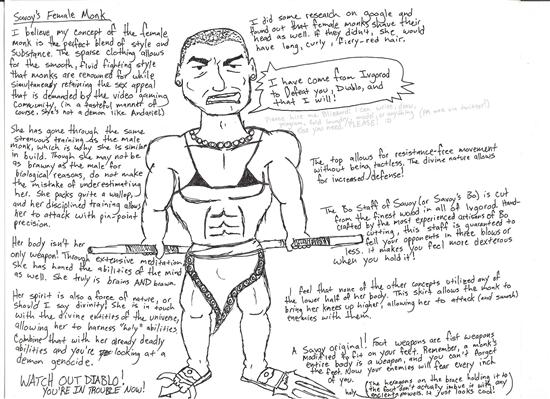 Savoy's Female Monk
I believe my concept of the female
monk is the perfect blend of style and
Substance. The sparse clothing allows
for the smooth, fluid fighting style
that monks are renowned for while
simultaneously retaining the sex appeal
that is demanded by the video gaming
community, (in a tasteful manner of
course. She's not a demon like Andariel)
She has gone through the same
strenuous training as the male
monk, which is why she is similar
in build. Though she may not be
as brawny as the male for
biological reasons, do not make
the mistake of underestimating
her. She packs quite a wallop,
and her disciplined training allows
her to attack with pin-point
precision.
Her body isn't her
only weapon! Through extensive meditation,
she has honed the abilities of the mind
as well. She truly is brains AND brawn.
Her spirit is also a force of nature, or
should I say divinity! She is in touch
with the divine entities of the universe,
allowing her to harness "holy" abilities.
Combine that with her already deadly
abilities and you're looking at a
demon genocide.
WATCH OUT DIABLO!
YOU'RE IN TROUBLE NOW!
I did some research on google and
found out that female monks shave their
head as well. If they didn't, she would
have long, curly, fiery-red hair.
I have come from Ivgorod
to Defeat you, Diablo, and
that I will!
Please hire me Blizzard. I can write, draw,
The top allows for resistance-free movement
without being tactless. The divine nature allows
for increased defense!
The Bo Staff of Savoy (or Savoy's Bo) is cut
from the finest wood in all of Ivgorod. Hand-
crafted by the most experienced artisans of Bo
cutting, this staff is guaranteed to
fell your opponents in three blows or
less. it makes you feel more dexterous
when you hold it!
I feel that none of the other concepts utilized any of
the lower half of her body. This skirt allows the monk to
bring her knees up higher, allowing her to attack (and smash)
enemies with them.
A Savoy original! Foot weapons are fist weapons
modified to fit on your feet. Remember, a monk's
entire body is a weapon, and you can't forget
the feet. Now your enemies will fear every inch
of you.
(The hexagons on the brace holding it to
the foot don't actually imbue it with any
holy ancient powers. It just looks cool!)